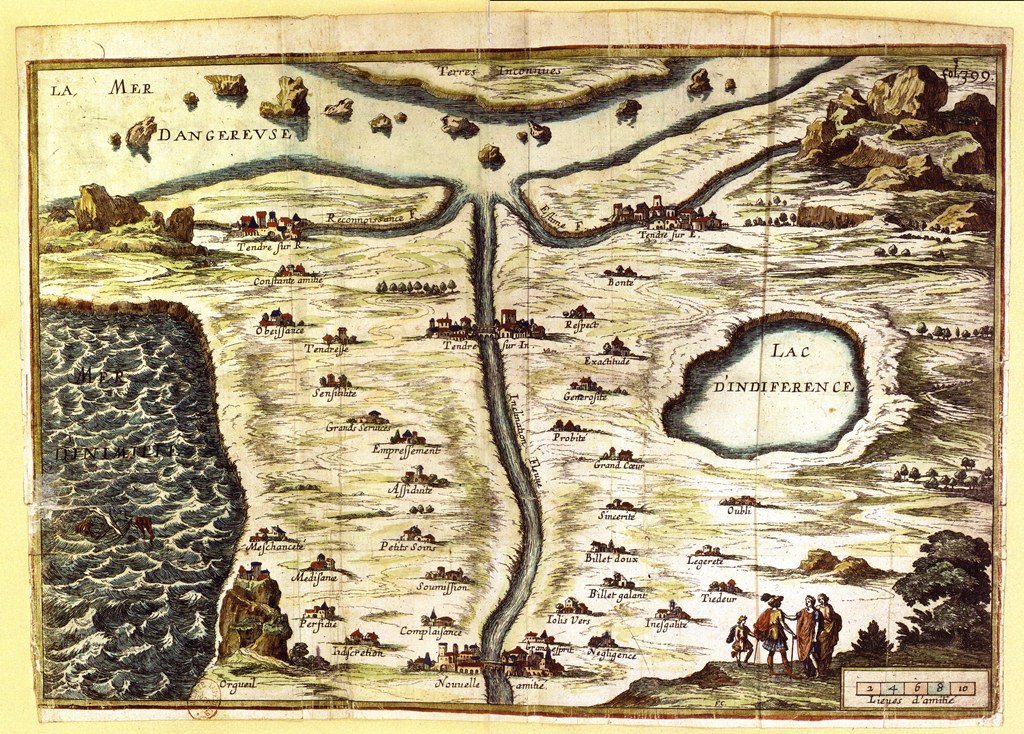 LA MER
DANGEREVSE
Terres Inconnues
fol. 399.
Reconnoissance F.
Estime F.
Tendre sur R.
Tendre sur E.
Constante amitie
Bonté
Obeissance
Respect
Tendresse
Tendre sur In
Exactitude
LAC
D'INDIFERENCE
MER
Sensibilité
Generosité
Inclination Fleuve
Grands Services
Probité
Empressement
Grand Cœur
Assiduité
Sincerité
Oubli
Meschanceté
Petits Soins
Billet doux
Legereté
Medisance
Soumission
Billet galant
Tiedeur
Perfidie
Complaisance
Iolis Vers
Inesgalité
Indiscretion
Grand esprit
Negligence
Orgueil
Nouvelle amitié
2 4 6 8 10
Lieues d'amitié